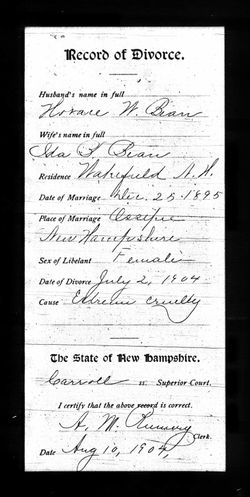 Record of Divorce.
Husband's name in full
Horace W. Bean
Wife's name in full
Ida S. Bean
Residence Wakefield N.H.
Date of Marriage Dec. 25-1895
Place of Marriage Ossipee
New Hampshire
Sex of Libelant Female
Date of Divorce July 2, 1904
Cause Extreme cruelty
The State of New Hampshire.
Carroll ss. Superior Court.
I certify that the above record is correct.
A. M. Rumery
Clerk.
Date Aug 10, 1904,